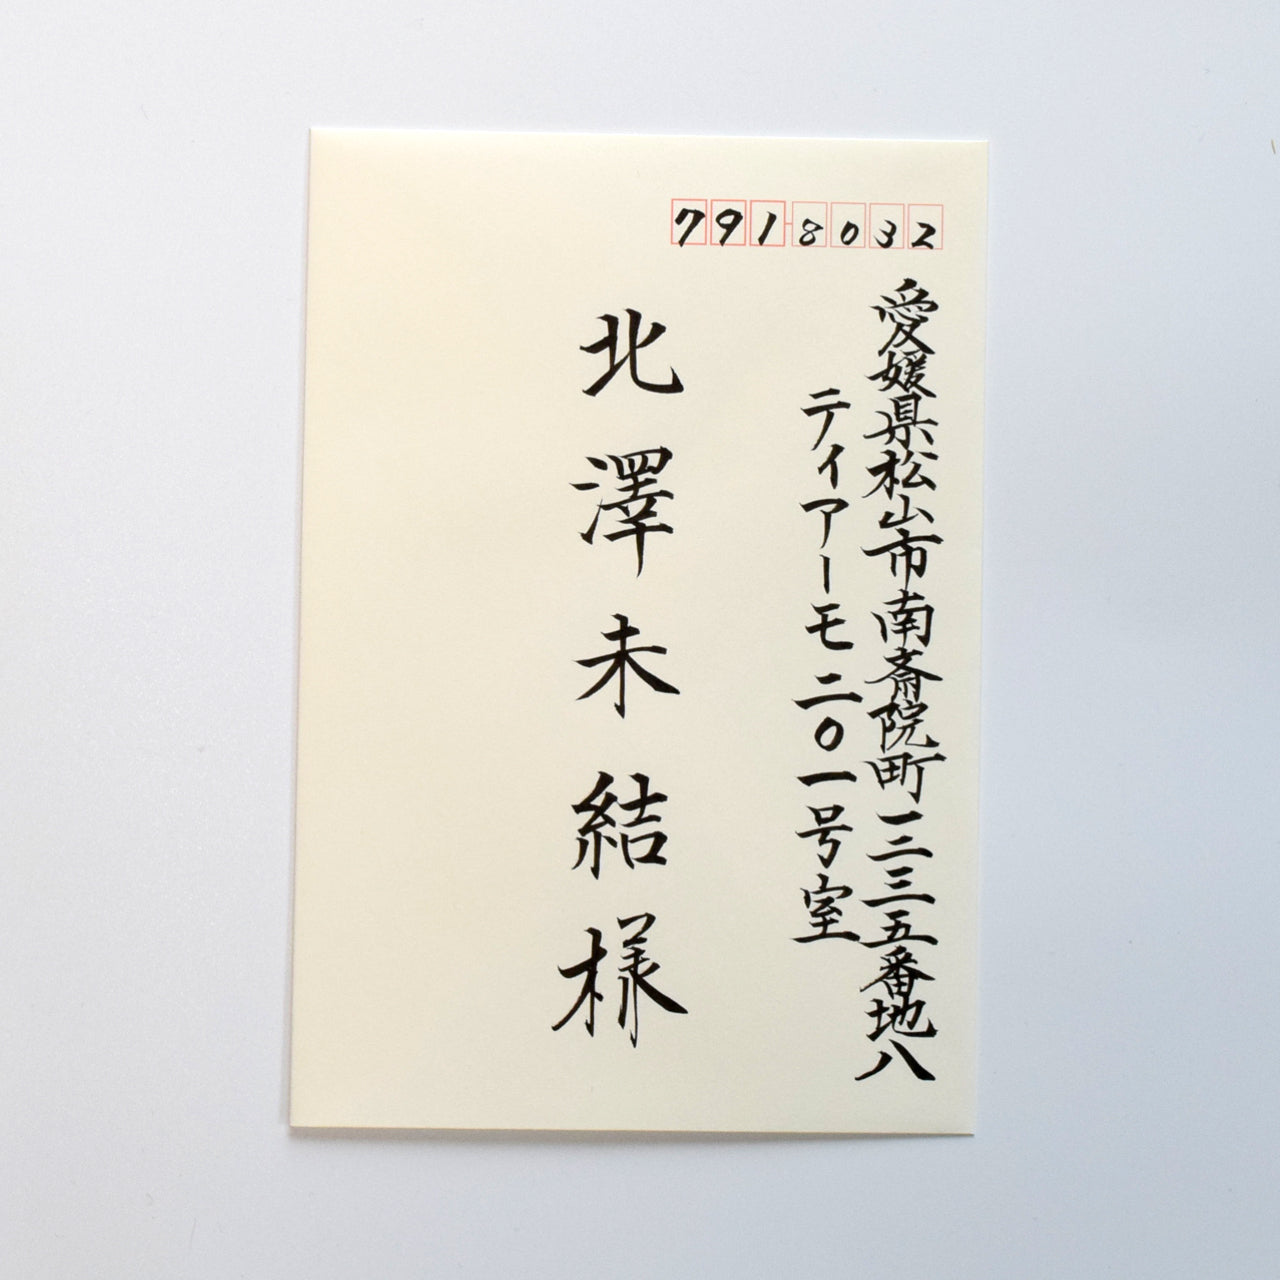 7918032
愛媛県松山市南斎院町一三三五番地八
ティアーモ二〇一号室
北澤未結様